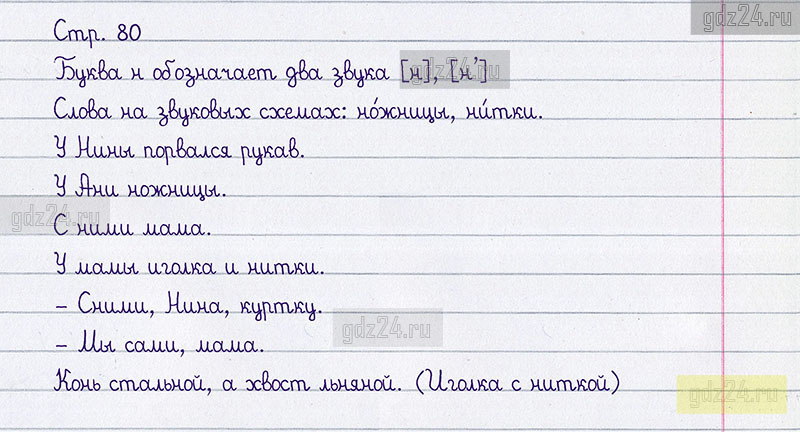 gdz24.ru
Стр. 80
Буква н обозначает два звука [н], [н’]
gdz24.ru
Слова на звуковых схемах: но́жницы, ни́тки.
У Нины порвался рукав.
У Ани ножницы.
gdz24.ru
С ними мама.
У мамы иголка и нитки.
– Сними, Нина, куртку.
gdz24.ru
– Мы сами, мама.
Конь стальной, а хвост льняной. (Иголка с ниткой)
gdz24.ru